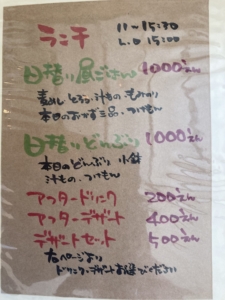 ランチ 11~15:30
L.O 15:00
日替り昼ごはん 1000えん
麦めし とろろ 汁もの もみのり
本日のおかず三品・つけもん
日替りどんぶり 1000えん
本日のどんぶり 小鉢
汁もの・つけもん
アフタードリンク 200えん
アフターデザート 400えん
デザートセット 500えん
右ページより
ドリンク・デザートお選びください